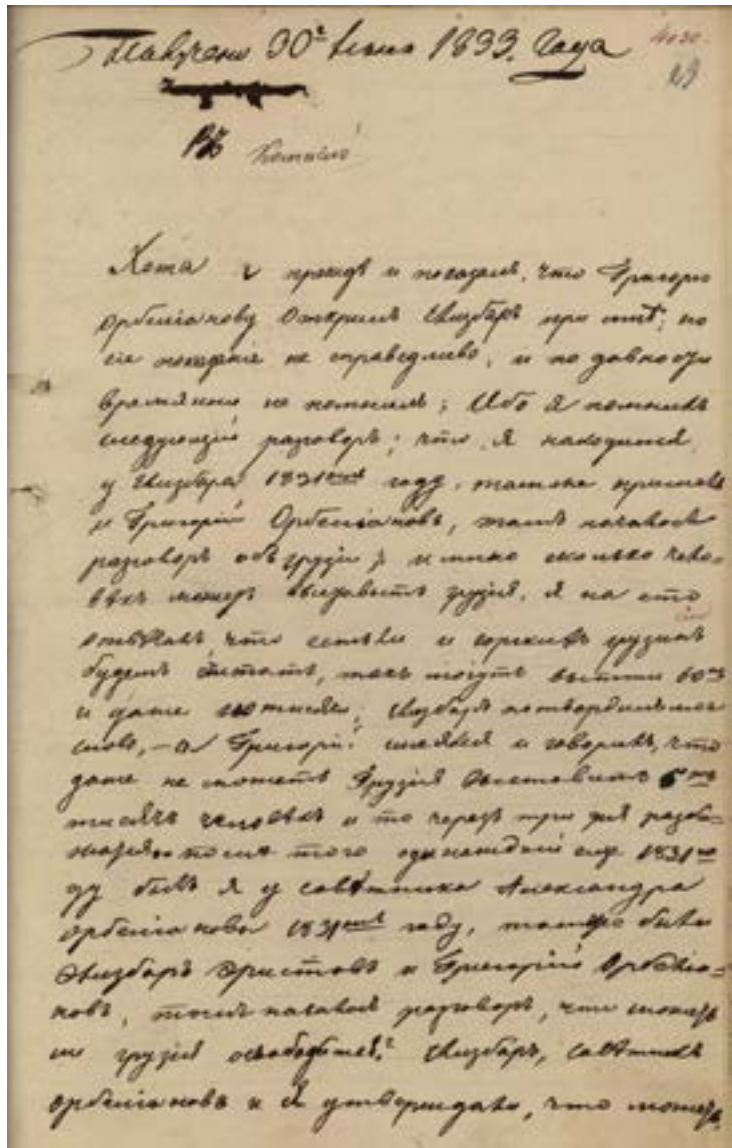 Получено 30го июня 1833. Года
29
въ Комисию
Хотя я прежде и показалъ, что Григорію
Орбеліанову открылъ Елизбаръ при мнѣ; но
сіе показаніе не справедливо, и по давности
времянно не помнилъ; Ибо я помню
следующій разговоръ; что, я находился
у Елизбара 1831мъ году, тамже пришолъ
и Григорій Орбеліановъ, тамъ начался
разговоръ объ грузіи; и мино сколько чело-
вѣкъ можетъ выставить грузія. Я на это
отвѣчалъ, что естьли и горскихъ грузинъ
будемъ считать, то могутъ вытти 60ть
и даже тысячь; Елизбаръ потвердилъ мои
слова, – а Григорій смеялся и говорилъ, что
даже не можетъ Грузія выставить 5ть
тысячь человѣкъ и то черезъ три дня разбе-
жатся. после того одинаждый еще 1831го
ду былъ я у совѣтника Александра
Орбеліанова 1831мъ году, тамже были
Елизбаръ Эристовъ и Григорій Орбеліа-
новъ, тамъ начался разговоръ, что можетъ
ли грузія освободится? Елизбаръ, совѣтникъ
Орбеліановъ и я утверждали, что можетъ,